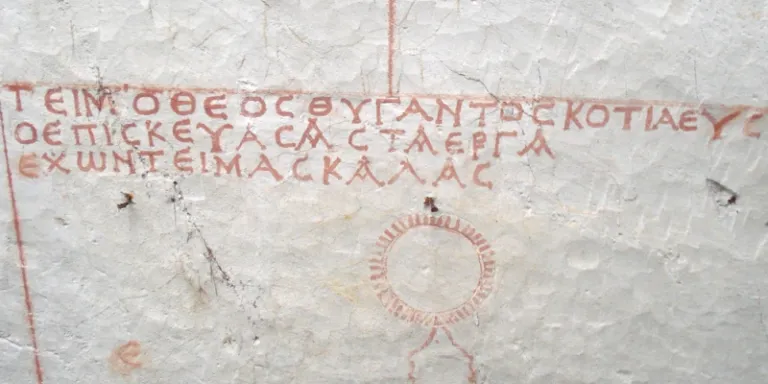 ΤΕΙΜΟΘΕΟϹΘΥΓΑΝΤΟϹΚΟΤΙΑΕΥϹ
ΟΕΠΙϹΚΕΥΑϹΑϹΤΑΕΡΓΑ
ΕΧΩΝΤΕΙΜΑϹΚΑΛΑϹ
Ε